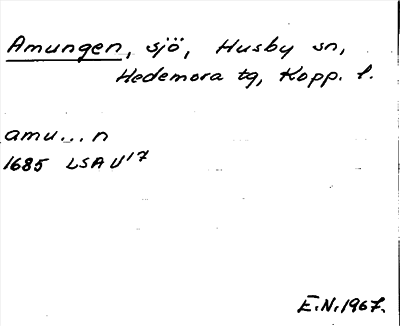 Amungen, sjö, Husby sn,
Hedemora tg, Kopp. l.
amu...n
1685 LSA U17
E.N. 1967.